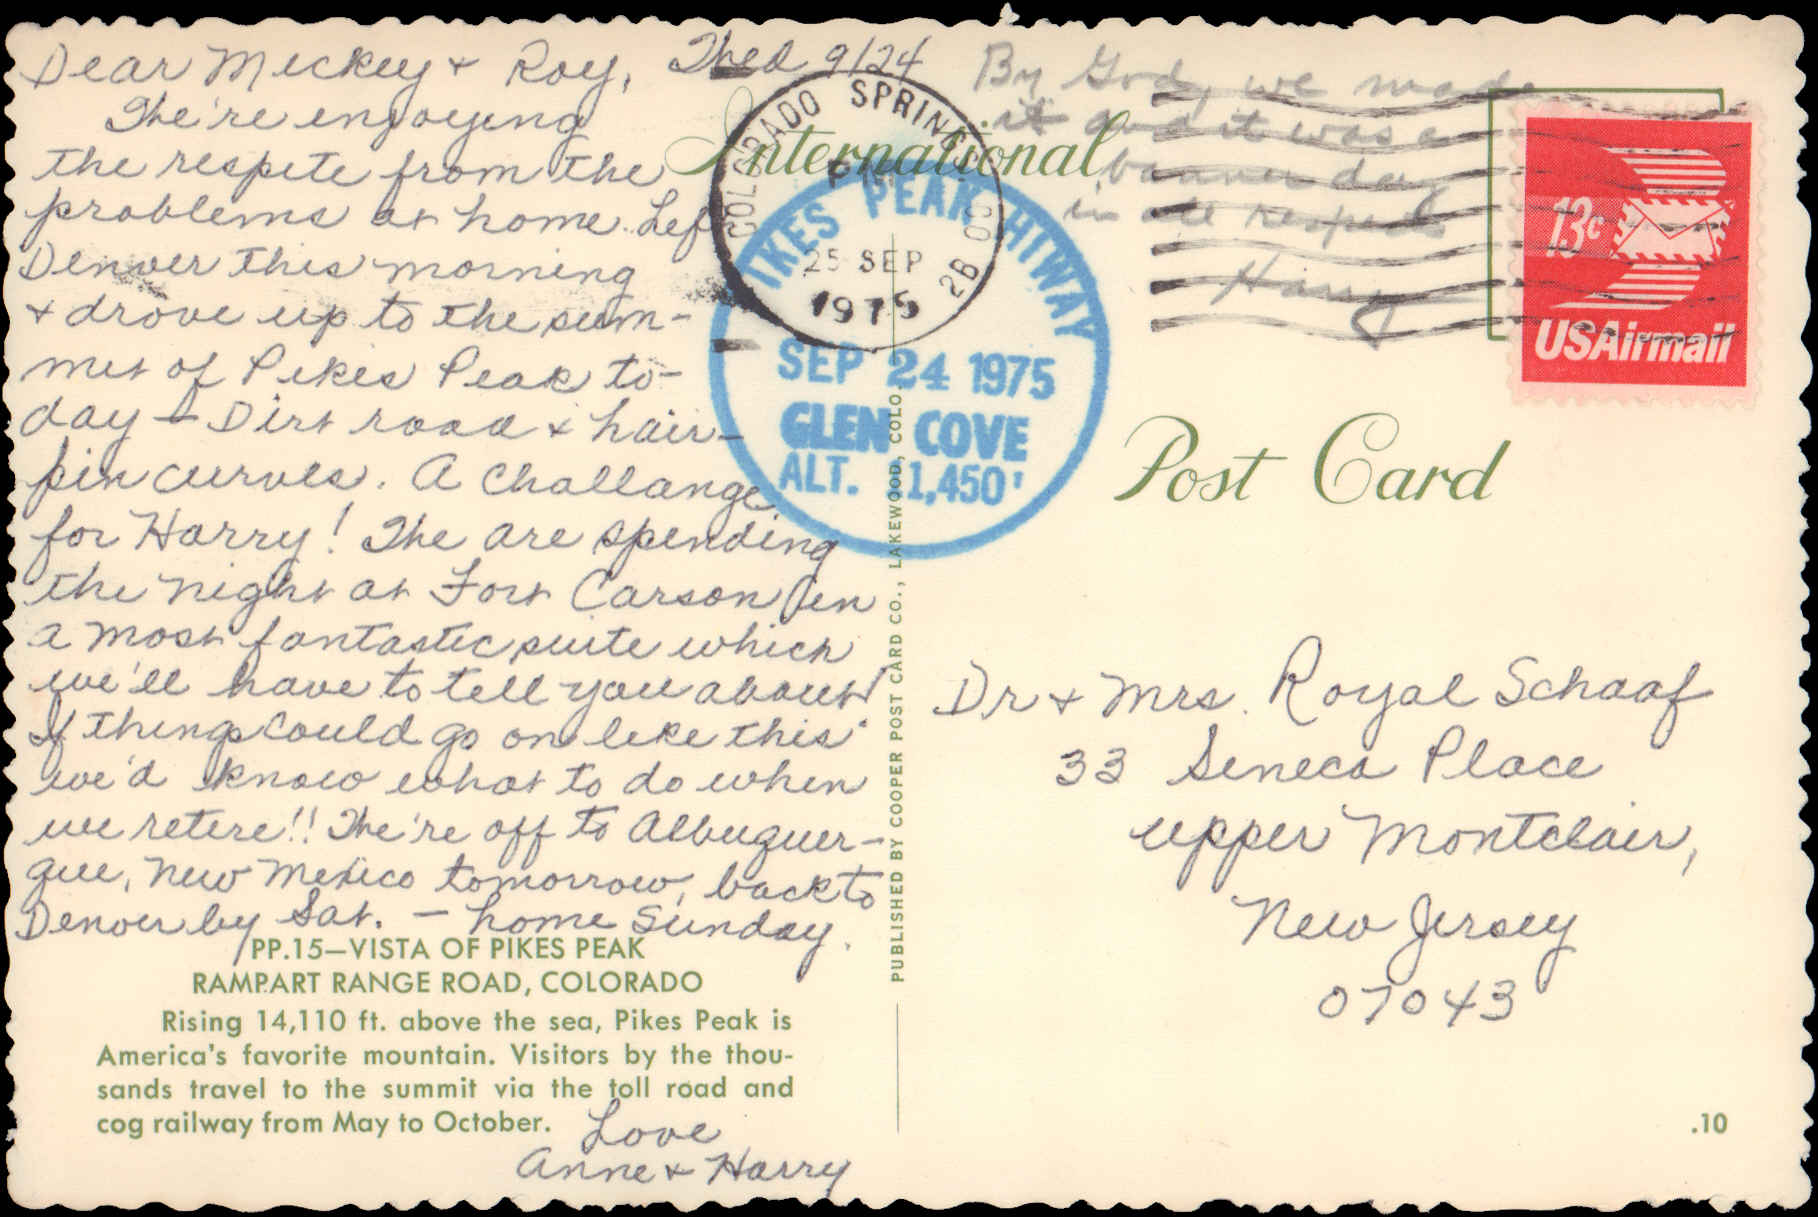 Dear Mickey + Roy, Wed 9/24
We're enjoying
the respite from the
problems at home. Left
Denver this morning
+ drove up to the sum-
mit of Pikes Peak to-
day – Dirt road + hair-
pin curves. A challange
for Harry! We are spending
the night at Fort Carson in
a most fantastic suite which
we'll have to tell you about
If things could go on like this
we'd know what to do when
we retire!! We're off to Albuquer-
que, New Mexico tomorrow, back to
Denver by Sat. – home Sunday.
PP.15—VISTA OF PIKES PEAK
RAMPART RANGE ROAD, COLORADO
Rising 14,110 ft. above the sea, Pikes Peak is
America's favorite mountain. Visitors by the thou-
sands travel to the summit via the toll road and
cog railway from May to October.
Love
Anne + Harry
International
COLORADO SPRINGS CO
PM
25 SEP
1975
2B
PIKES PEAK HIWAY
SEP 24 1975
GLEN COVE
ALT. 11,450'
PUBLISHED BY COOPER POST CARD CO., LAKEWOOD, COLO
By God, we made
it and it was a
banner day
in all respects
Harry
13c
USAirmail
Post Card
Dr + Mrs. Royal Schaaf
33 Seneca Place
Upper Montclair,
New Jersey
07043
.10